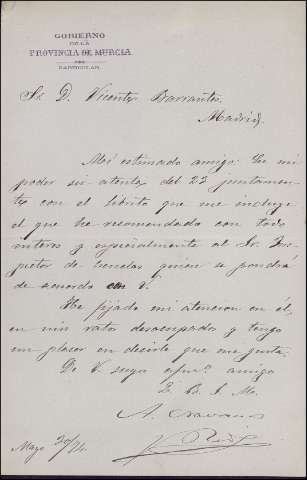 GOBIERNO
DE LA
PROVINCIA DE MURCIA
PARTICULAR
Sr. D. Vicente Barrantes
Madrid
Mi estimado amigo: En mi
poder su atenta del 23 juntamen-
te con el librito que me incluye
el que he recomendado con todo
interes y especialmente al Sr. Ins-
pector de Escuelas quien se pondrá
de acuerdo con V.
He fijado mi atencion en él,
en mis ratos desocupados y tengo
un placer en decirle que me gusta.
De V. suyo afmo. amigo
Q. B. S. M.
A. Navarro
Mayo 30/74